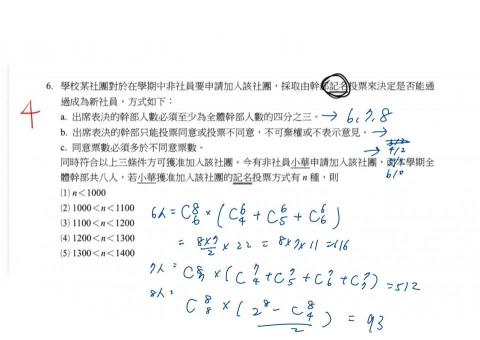 4
6. 學校某社團對於在學期中非社員要申請加入該社團，採取由幹部記名投票來決定是否能通
過成為新社員，方式如下：
a. 出席表決的幹部人數必須至少為全體幹部人數的四分之三。→ 6,7,8
b. 出席表決的幹部只能投票同意或投票不同意，不可棄權或不表示意見。→
c. 同意票數必須多於不同意票數。→
4/2
6/0
同時符合以上三條件方可獲准加入該社團。今有非社員小華申請加入該社團，而本學期全
體幹部共八人，若小華獲准加入該社團的記名投票方式有 n 種，則
(1) n<1000
(2) 1000<n<1100
(3) 1100<n<1200
(4) 1200<n<1300
(5) 1300<n<1400
6人 = C⁸₆ × (C⁶₄ + C⁶₅ + C⁶₆)
= 8×7/2 × 22 = 8×7×11 = 616
7人 = C⁸₇ × (C⁷₄ + C⁷₅ + C⁷₆ + C⁷₇) = 512
8人 = C⁸₈ × (2⁸ - C⁸₄)/2) = 93